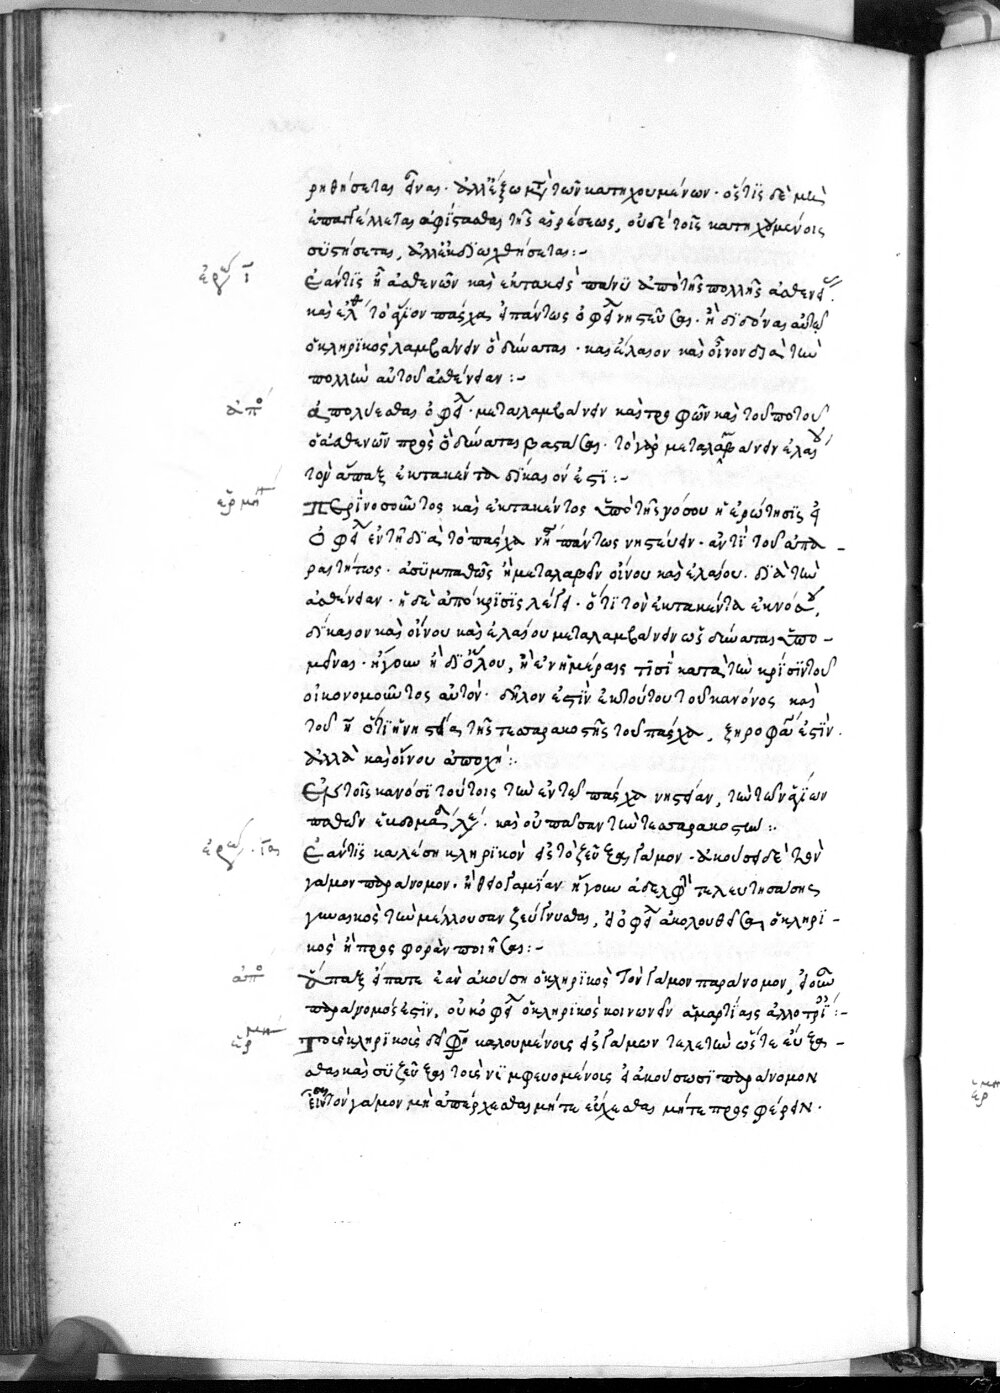 ρηθήσεται ἵνας. ἀλλ' ἔξω μετὰ τῶν κατηχουμένων. ὅστις δὲ μὴ
ἐπαγγέλλεται ἀφίστασθαι τῆς αἱρέσεως, οὐδὲ τοῖς κατηχουμένοις
συστήσεται, ἀλλ' ἐκδιωχθήσεται:~
ἐρώ ι
Ἐάν τις ἦ ἀσθενῶν καὶ ἐκτακεὶς πάνυ ἀπὸ τῆς πολλῆς ἀσθενείας
καὶ ἔλθη τὸ ἅγιον πάσχα εἰ πάντως ὀφείλει νηστεῦσαι. ἢ διδόναι αὐτῷ
ὁ κληρικὸς λαμβάνειν ὃ δύναται. καὶ ἔλαιον καὶ οἶνον διὰ τὴν
πολλὴν αὐτοῦ ἀσθένειαν:~
ἀπό
ἀπολύεσθαι ὀφείλει. μεταλαμβάνειν καὶ τροφῶν καὶ τοῦ ποτοῦ
ὁ ἀσθενῶν πρὸς ὃ δύναται βαστάσαι. τὸ γὰρ μεταλαμβάνειν ἐλαίου
τὸν ἅπαξ ἐκτακέντα δίκαιόν ἐστι:~
ἑρμη
Περὶ νοσοῦντος καὶ ἐκτακέντος ὑπὸ τῆς νόσου ἡ ἐρώτησις εἰ
ὀφείλει ἐν τῆ διὰ τὸ πάσχα νη πάντως νηστεύειν. ἀντὶ τοῦ ἀπα-
ραιτήτως. ἀσυμπαθῶς ἢ μεταλαβεῖν οἴνου καὶ ἐλαίου. διὰ τὴν
ἀσθένειαν. ἡ δὲ ἀπόκρισις λέγει. ὅτι τὸν ἐκτακέντα ἐκ νόσου,
δίκαιον καὶ οἴνου καὶ ἐλαίου μεταλαμβάνειν ὡς δύναται ὑπο-
μεῖναι. ἤγουν ἢ δι' ὅλου, ἢ ἐν ἡμέραις τισὶ κατὰ τὴν κρίσιν τοῦ
οἰκονομοῦντος αὐτόν. δῆλον ἐστὶν ἐκ τούτου τοῦ κανόνος καὶ
τοῦ η ὅτι ἡ νηστεία τῆς τεσσαρακοστῆς τοῦ πάσχα, ξηροφαγία ἐστίν.
ἀλλὰ καὶ οἴνου ἀποχή:
Ἐν τοῖς κανόσι τούτοις τὴν ἐν τῷ πάσχα νηστείαν, τὴν τῶν ἁγίων
παθῶν ἑβδομάδα λέγει. καὶ οὐ πᾶσαν τὴν τεσσαρακοστήν:.
ἐρώ. ια
Ἐάν τις καλέση κληρικὸν εἰς τὸ ζεῦξαι γάμον. ἀκούσει δὲ τὸν
γάμον παράνομον. ἢ θειογαμίαν ἤγουν ἀδελφὴ τελευτησάσης
γυναικὸς τὴν μέλλουσαν ζεύγνυσθαι, εἰ ὀφείλει ἀκολουθεῖσαι ὁ κληρι-
κὸς ἢ προσφορὰν ποιῆσαι:~
ἀπό
Ἅπαξ εἴπατε ἐὰν ἀκούση ὁ κληρικὸς τὸν γάμον παράνομον, εἰ οὖν
παράνομός ἐστιν, οὐκ ὀφείλει ὁ κληρικὸς κοινωνεῖν ἁμαρτίαις ἀλλοτρίαις:~
ἑρμη
Τοῖς κληρικοῖς δέ φησι καλουμένοις εἰς γάμων τελετὴν ὥστε εὔξα-
σθαι καὶ συζεῦξαι τοὺς νυμφευομένοις εἰ ἀκούσωσι παράνομον
εἶναι τὸν γάμον μὴ ἀπέρχεσθαι μήτε εὔχεσθαι μήτε προσφέρειν.
ἑρμη